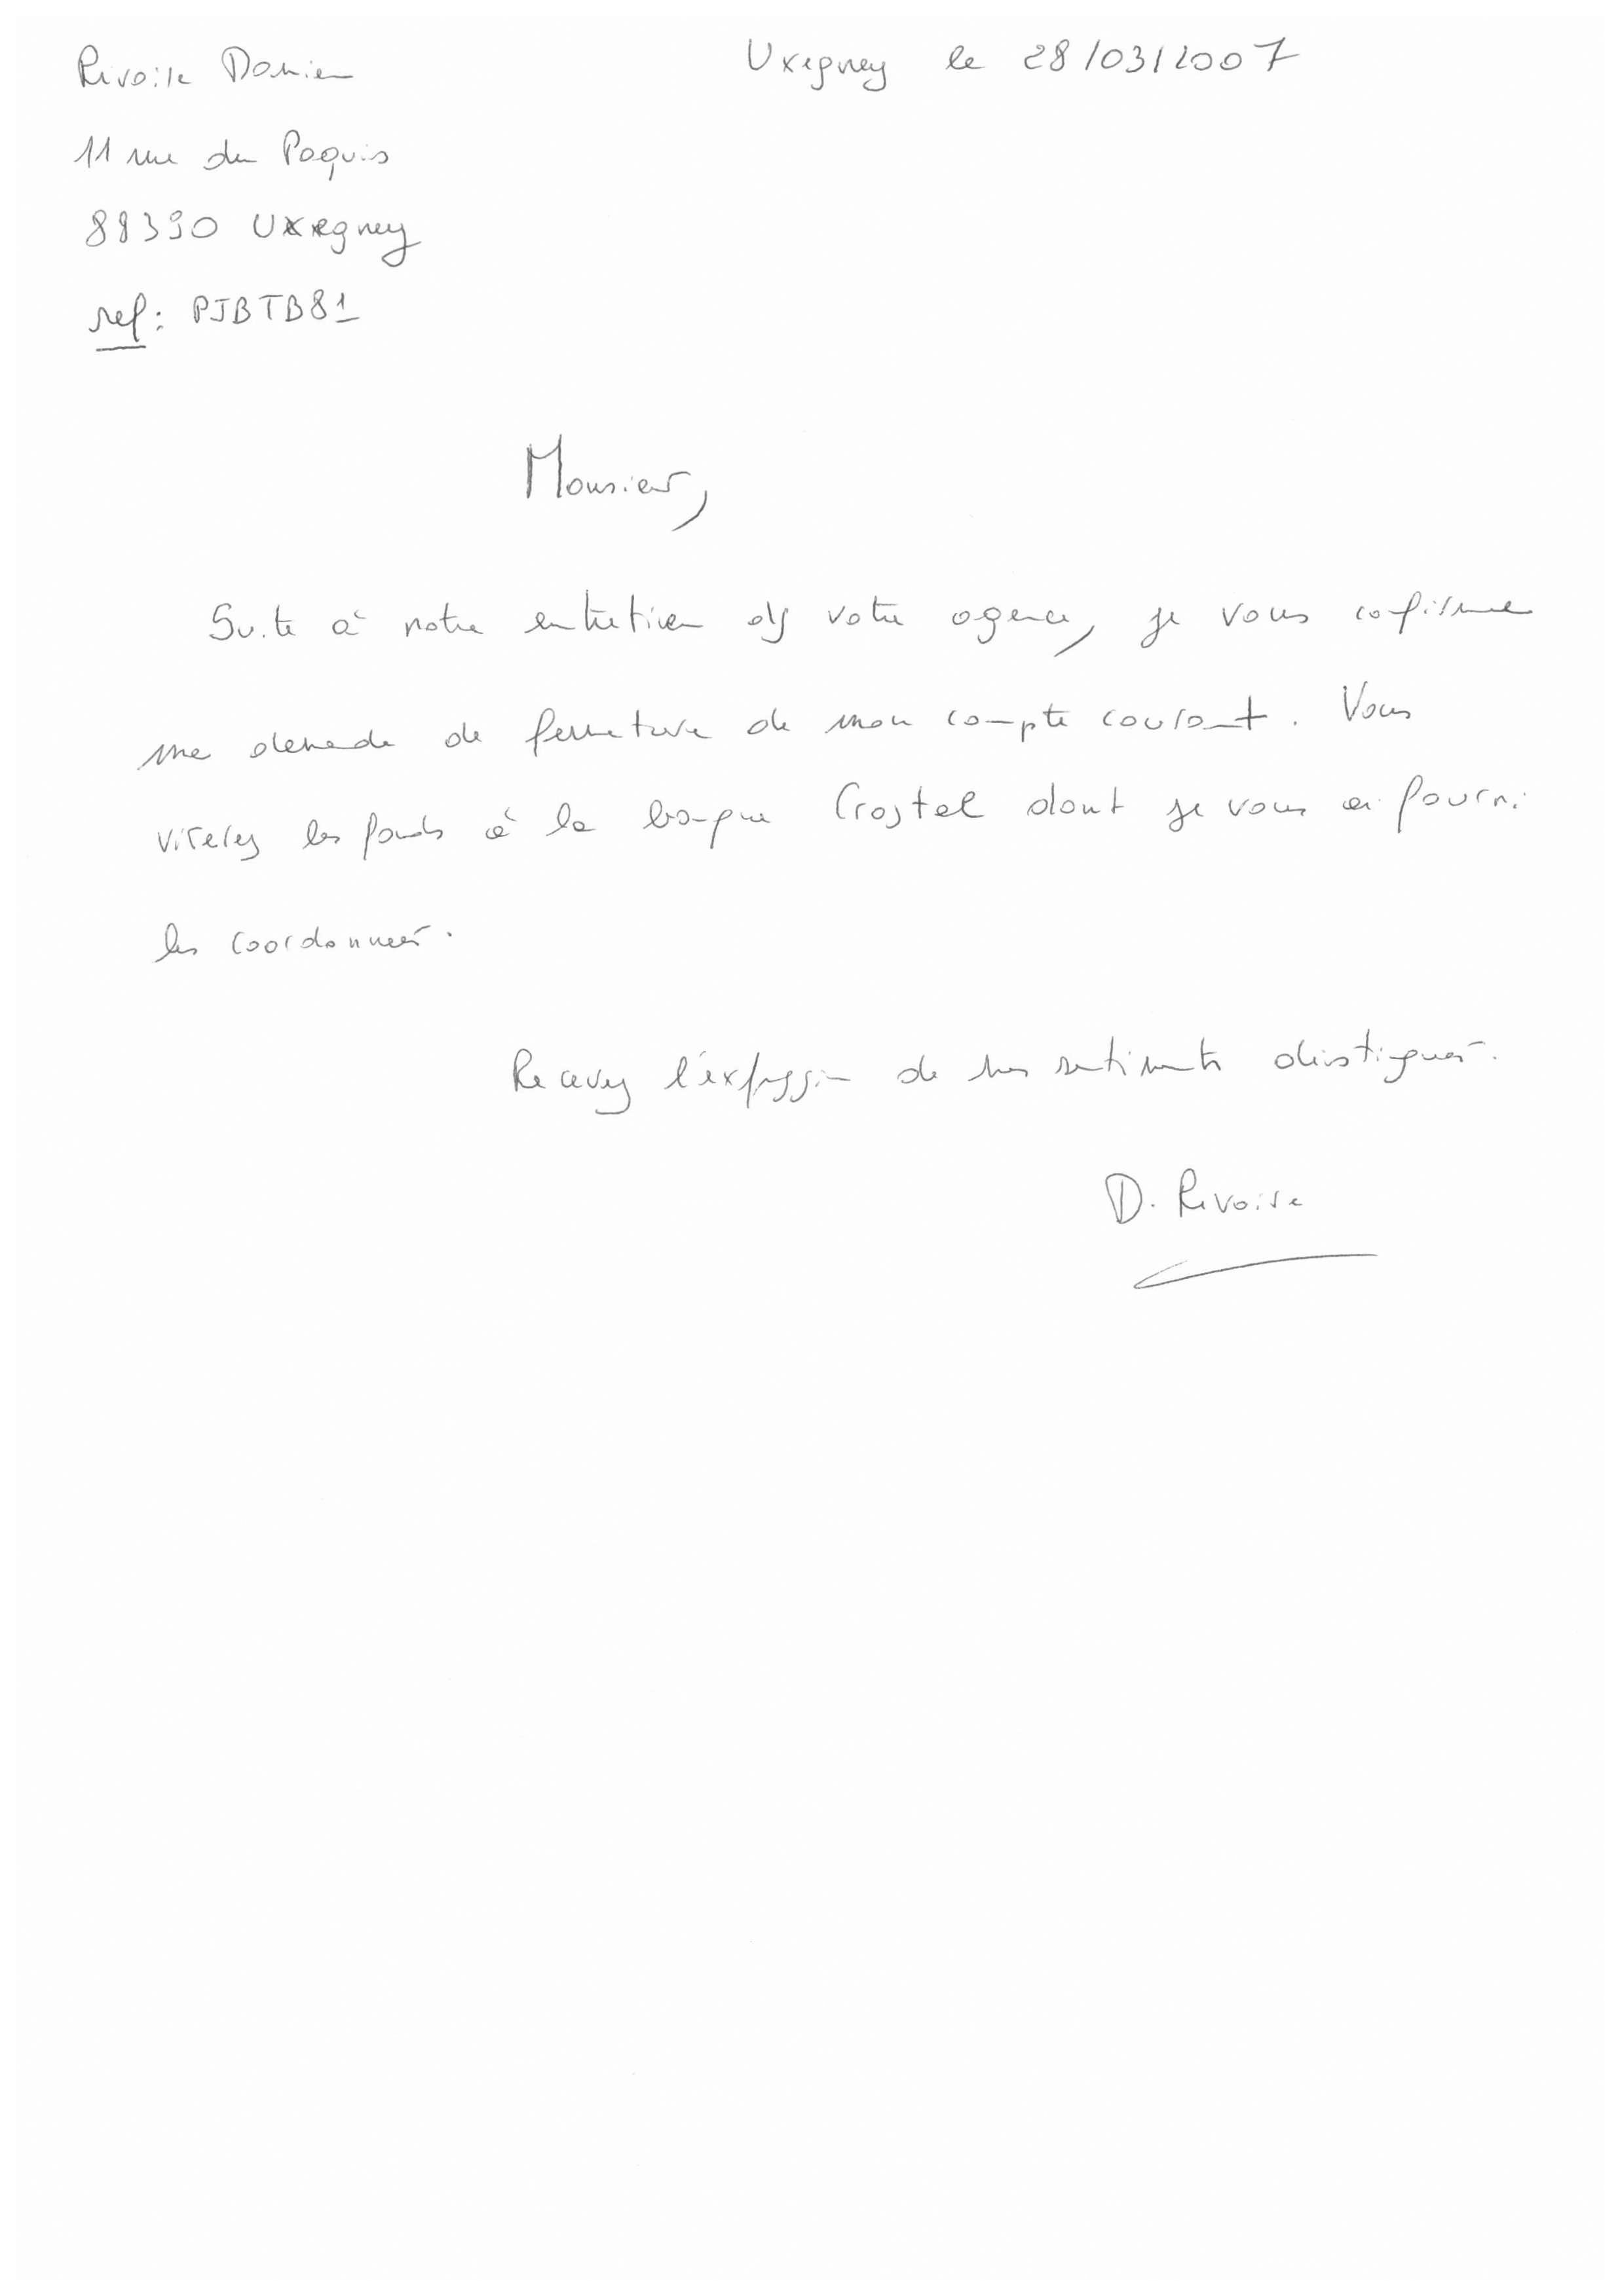 Rivoire Damien
Uxegney le 28/03/2007
11 rue du Paquis
88390 Uxegney
ref: PJBTB81
Monsieur,
Suite à notre entretien ds votre agence, je vous confirme
ma demande de fermeture de mon compte courant. Vous
virerez les fonds à la banque Crostel dont je vous ai fourni
les coordonnées.
Recevez l'éxpression de mes sentiments distingués.
D. Rivoire